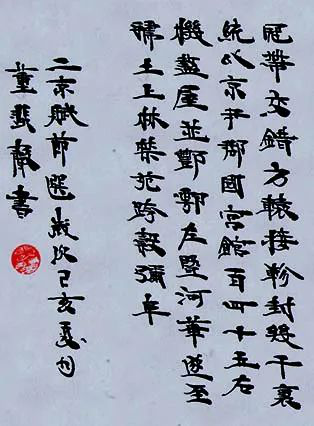 冠帶交錯方轅接軫封畿千裏
統以京尹郡國宮館百四十五右
極盩屋並酆鄠左暨河華遂至
虢土上林禁苑跨穀彌阜
二京賦節選歲次己亥夏月
書